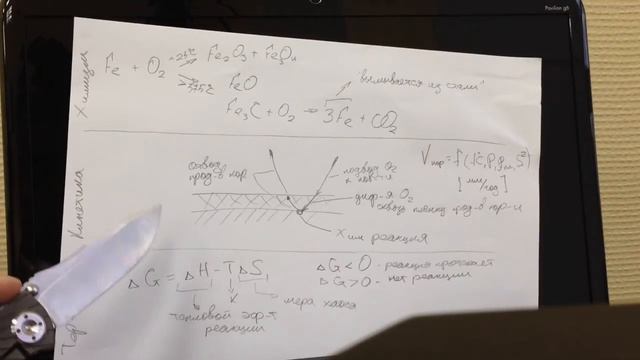 Pavilion g6
Химизм
Fe + O₂ → Fe₂O₃ + Fe₃O₄
FeO
Fe₃C + O₂ → 3Fe + CO₂
"вымывается из стали"
Кинетика
отвод
прод-в кор
подвод O₂
к пов-ти
диф-я O₂
сквозь пленку прод-в кор-и
хим реакция
V кор = f (
[мм/год]
ΔG = ΔH - TΔS
тепловой эф-т
реакции
K
мера хаоса
ΔG < 0 - реакция протекает
ΔG > 0 - нет реакции